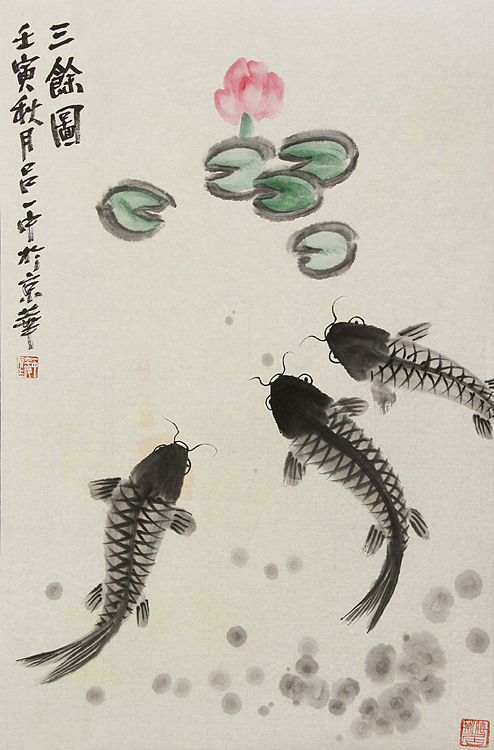 三餘圖
壬寅秋月吕一中於京華